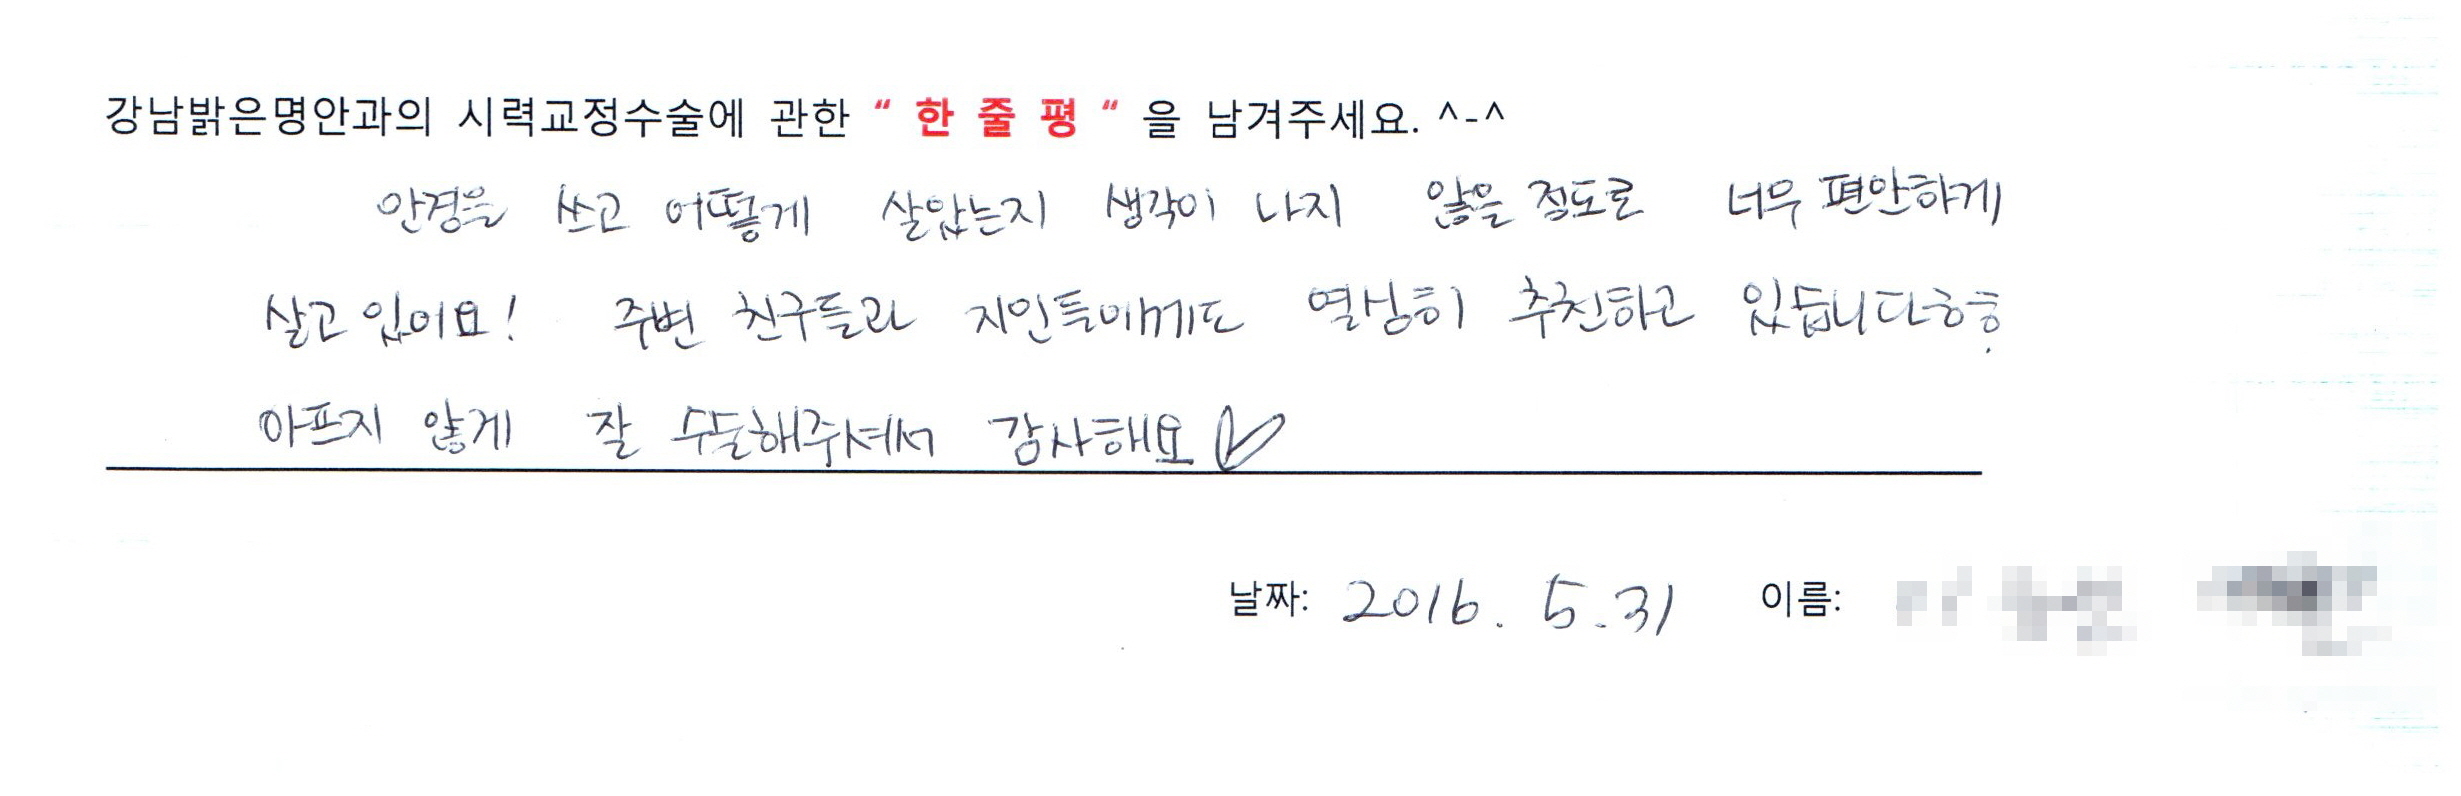 강남밝은명안과의 시력교정수술에 관한 “ 한 줄 평 “ 을 남겨주세요. ^-^
안경을 쓰고 어떻게 살았는지 생각이 나지 않을 정도로 너무 편안하게
살고 있어요! 주변 친구들과 지인들에게도 열심히 추천하고 있습니다ㅎㅎ.
아프지 않게 잘 수술해주셔서 감사해요♡
날짜: 2016. 5.31 이름: